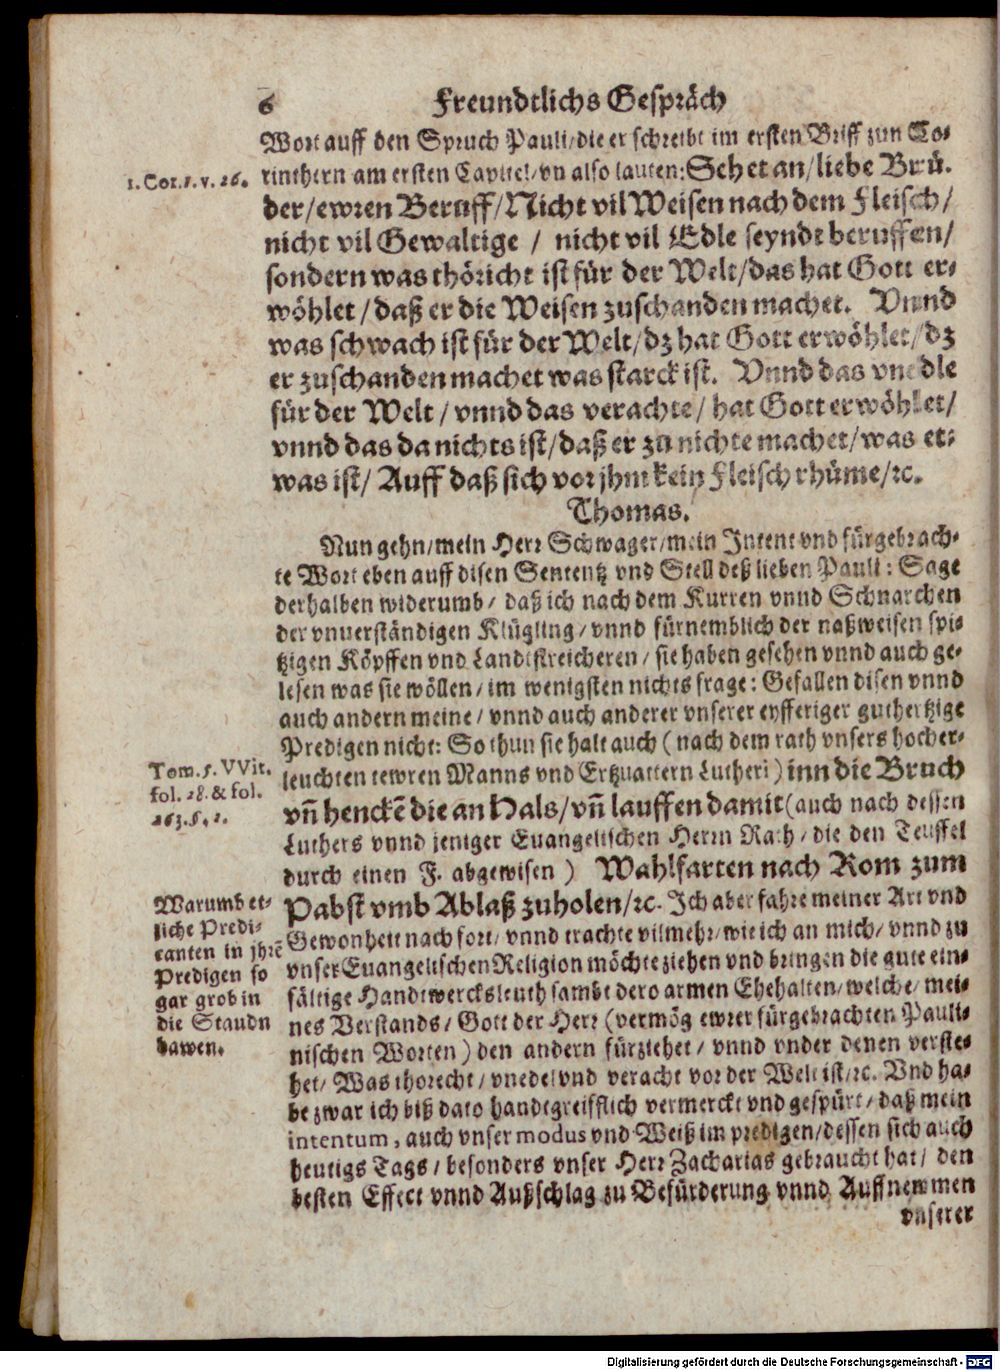 6 Freundtlichs Gespräch
Wort auff den Spruch Pauli/die er schreibt im ersten Briff zun Co-
1. Cor. 1. v. 26.
rinthern am ersten Capitel/vn also lauten: Sehet an/liebe Brü-
der/ewren Beruff/Nicht vil Weisen nach dem Fleisch/
nicht vil Gewaltige / nicht vil Edle seyndt beruffen/
sondern was thöricht ist für der Welt/das hat Gott er-
wöhlet/daß er die Weisen zuschanden machet. Vnnd
was schwach ist für der Welt/dz hat Gott erwöhlet/dz
er zuschanden machet was starck ist. Vnnd das vnedle
für der Welt / vnnd das verachte/ hat Gott erwöhlet/
vnnd das da nichts ist/daß er zu nichte machet/was et-
was ist/ Auff daß sich vor jhm kein Fleisch rhüme/rc.
Thomas.
Nun gehn/mein Herr Schwager/mein Intent vnd fürgebrach-
te Wort eben auff disen Sententz vnd Stell deß lieben Pauli: Sage
derhalben widerumb/ daß ich nach dem Kurren vnnd Schnarchen
der vnuerständigen Klügling/vnnd fürnemblich der naßweisen spi-
tzigen Köpffen vnd Landtstreicheren/ sie haben gesehen vnnd auch ge-
lesen was sie wöllen/im wenigsten nichts frage: Gefallen disen vnnd
auch andern meine/ vnnd auch anderer vnserer eyfferiger guthertzige
Predigen nicht: So thun sie halt auch (nach dem rath vnsers hocher-
Tom. 5. VVit.
fol. 28. & fol.
263. 5, 2.
leuchten tewren Manns vnd Ertzuattern Lutheri) inn die Bruch
vñ henckẽ die an Hals/vñ lauffen damit (auch nach dessen
Luthers vnnd jeniger Euangelischen Herrn Rath/die den Teuffel
durch einen F. abgewisen) Wahlfarten nach Rom zum
Pabst vmb Ablaß zuholen/rc. Ich aber fahre meiner Art vnd
Warumb et-
liche Predi-
canten in jhrẽ
Predigen so
gar grob in
die Staudn
hawen.
Gewonheit nach fort/ vnnd trachte vilmehr/wie ich an mich/ vnnd zu
vnser Euangelischen Religion möchte ziehen vnd bringen die gute ein-
fältige Handtwercksleuth sambt dero armen Ehehalten/welche/mei-
nes Verstands/ Gott der Herr (vermög ewrer fürgebrachten Pauli-
nischen Worten) den andern fürziehet/ vnnd vnder denen verste-
het/ Was thorecht/vnedel vnd veracht vor der Welt ist/rc. Vnd ha-
be zwar ich biß dato handtgreifflich vermerckt vnd gespürt/ daß mein
intentum, auch vnser modus vnd Weiß im predigen/dessen sich auch
heutigs Tags/ besonders vnser Herr Zacharias gebraucht hat/ den
besten Effect vnnd Außschlag zu Befürderung vnnd Auffnemmen
vnserer
Digitalisierung gefördert durch die Deutsche Forschungsgemeinschaft - DFG